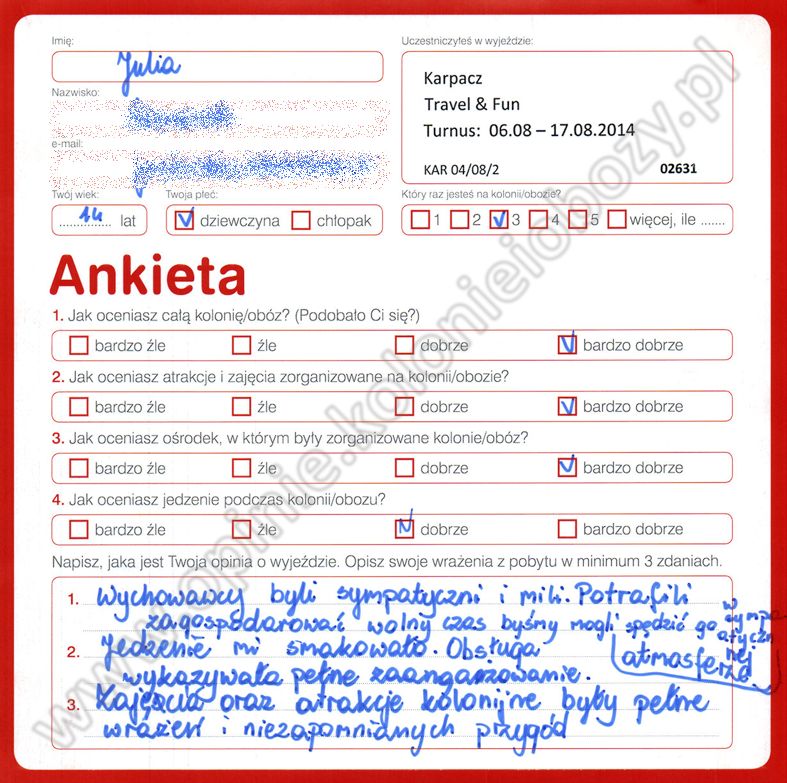 Imię:
Julia
Nazwisko:
e-mail:
Twój wiek:
14 lat
Twoja płeć:
dziewczyna chłopak
Uczestniczyłeś w wyjeździe:
Karpacz
Travel & Fun
Turnus: 06.08 – 17.08.2014
KAR 04/08/2 02631
Który raz jesteś na kolonii/obozie?
1 2 3 4 5 więcej, ile .......
Ankieta
1. Jak oceniasz całą kolonię/obóz? (Podobało Ci się?)
bardzo źle źle dobrze bardzo dobrze
2. Jak oceniasz atrakcje i zajęcia zorganizowane na kolonii/obozie?
bardzo źle źle dobrze bardzo dobrze
3. Jak oceniasz ośrodek, w którym były zorganizowane kolonie/obóz?
bardzo źle źle dobrze bardzo dobrze
4. Jak oceniasz jedzenie podczas kolonii/obozu?
bardzo źle źle dobrze bardzo dobrze
Napisz, jaka jest Twoja opinia o wyjeździe. Opisz swoje wrażenia z pobytu w minimum 3 zdaniach.
1. Wychowawcy byli sympatyczni i mili. Potrafili
zagospodarować wolny czas byśmy mogli spędzić go w sympa
atyczn
nej
atmasferze.
2. Jedzenie mi smakowało. Obsługa
wykazywała pełne zaangarzowanie.
3. Zajęcia oraz atrakcje kolonijne były pełne
wrażeń i niezapomnianych przygód
www.opinie.kolonieiobozy.pl